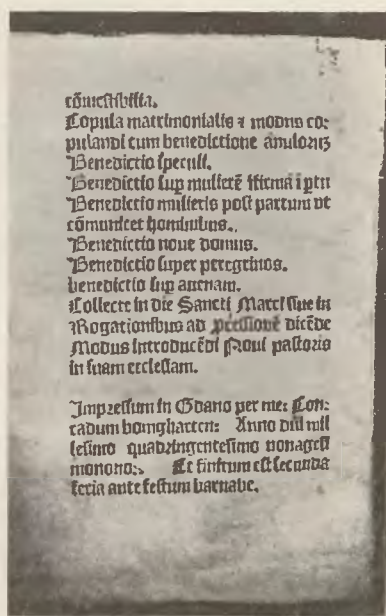 cōmestibilia.
Copula matrimonialis ⁊ modus co⸗
pulandi cum benedictione anuloruꝫ
Benedictio speculi.
Benedictio sup mulierē ifirmā i ptu
Benedictio mulieris post partum vt
cōmunicet hominibus.
Benedictio noue domus.
Benedictio super peregrinos.
benedictio sup auenam.
Collecte in die Sancti Marci siue in
Rogationibus ad pcessionē dicēde
Modus introducēdi Noui pastoris
in suam ecclesiam.
Impressum in Gdano per me: Con⸗
radum bomgharten: Anno dn̄i mil
lesimo quadringentesimo nonagesi
monono:. Et finitum est secunda
feria ante festum barnabe.